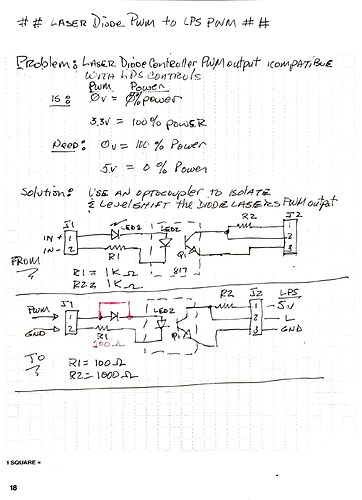 ## LASER DIODE PWM to LPS PWM ##
Problem: LASER DIODE CONTROLLER PWM OUTPUT INCOMPATIBLE
WITH LPS CONTROLS
PWM POWER
IS: 0V = 0% POWER
3.3V = 100% POWER
NEED: 0V = 100% POWER
5V = 0% POWER
Solution: USE AN OPTOCOUPLER TO ISOLATE
& LEVEL SHIFT THE DIODE LASERS PWM OUTPUT
J1 LED2 R2 J2
IN+ 1 LED2 1
IN- 2 R1 Q1 2
3
FROM R1 = 1KΩ 817
R2 = 1KΩ
J1 R2 J2 LPS
PWM 1 LED2 1 5V
GND 2 R1 Q1 2 L
100Ω 3 GND
TO R1 = 100Ω
R2 = 1000Ω
1 SQUARE =
18